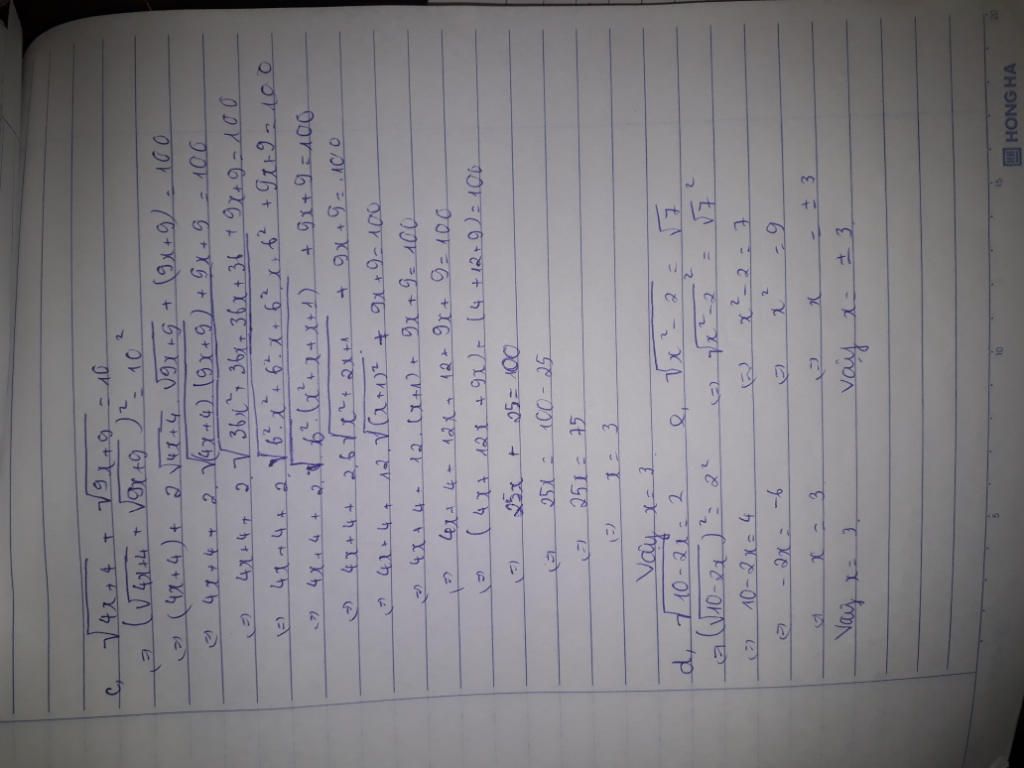 c, √(4x+4) + √(9x+9) = 10
(=) (√(4x+4) + √(9x+9))² = 10²
(=) (4x+4) + 2 √(4x+4) √(9x+9) + (9x+9) = 100
(=) 4x+4 + 2 √((4x+4).(9x+9)) + 9x+9 = 100
(=) 4x+4 + 2 √(36x² + 36x + 36x + 36) + 9x+9 = 100
(=) 4x+4+2 √(6²x² + 6².x + 6²x + 6²) + 9x+9 = 100
(=) 4x+4 + 2 √(6²(x²+x+x+1)) + 9x+9 = 100
(=) 4x+4 + 2.6 √(x²+2x+1) + 9x+9 = 100
(=) 4x+4 + 12 √((x+1)²) + 9x+9 = 100
(=) 4x+4 + 12.(x+1) + 9x+9 = 100
(=) 4x+4 + 12x + 12 + 9x + 9 = 100
(=) (4x + 12x + 9x) + (4+12+9) = 100
(=) 25x + 25 = 100
(=) 25x = 100 - 25
(=) 25x = 75
(=) x = 3
Vậy x = 3
d, √(10-2x) = 2
(=) (√(10-2x))² = 2²
(=) 10-2x = 4
(=) -2x = -6
(=) x = 3
Vậy x = 3
e, √(x²-2) = √7
(=) √(x²-2)² = √7²
(=) x²-2 = 7
(=) x² = 9
(=) x = ± 3
Vậy x = ± 3
5 10 15 20
HONG HA